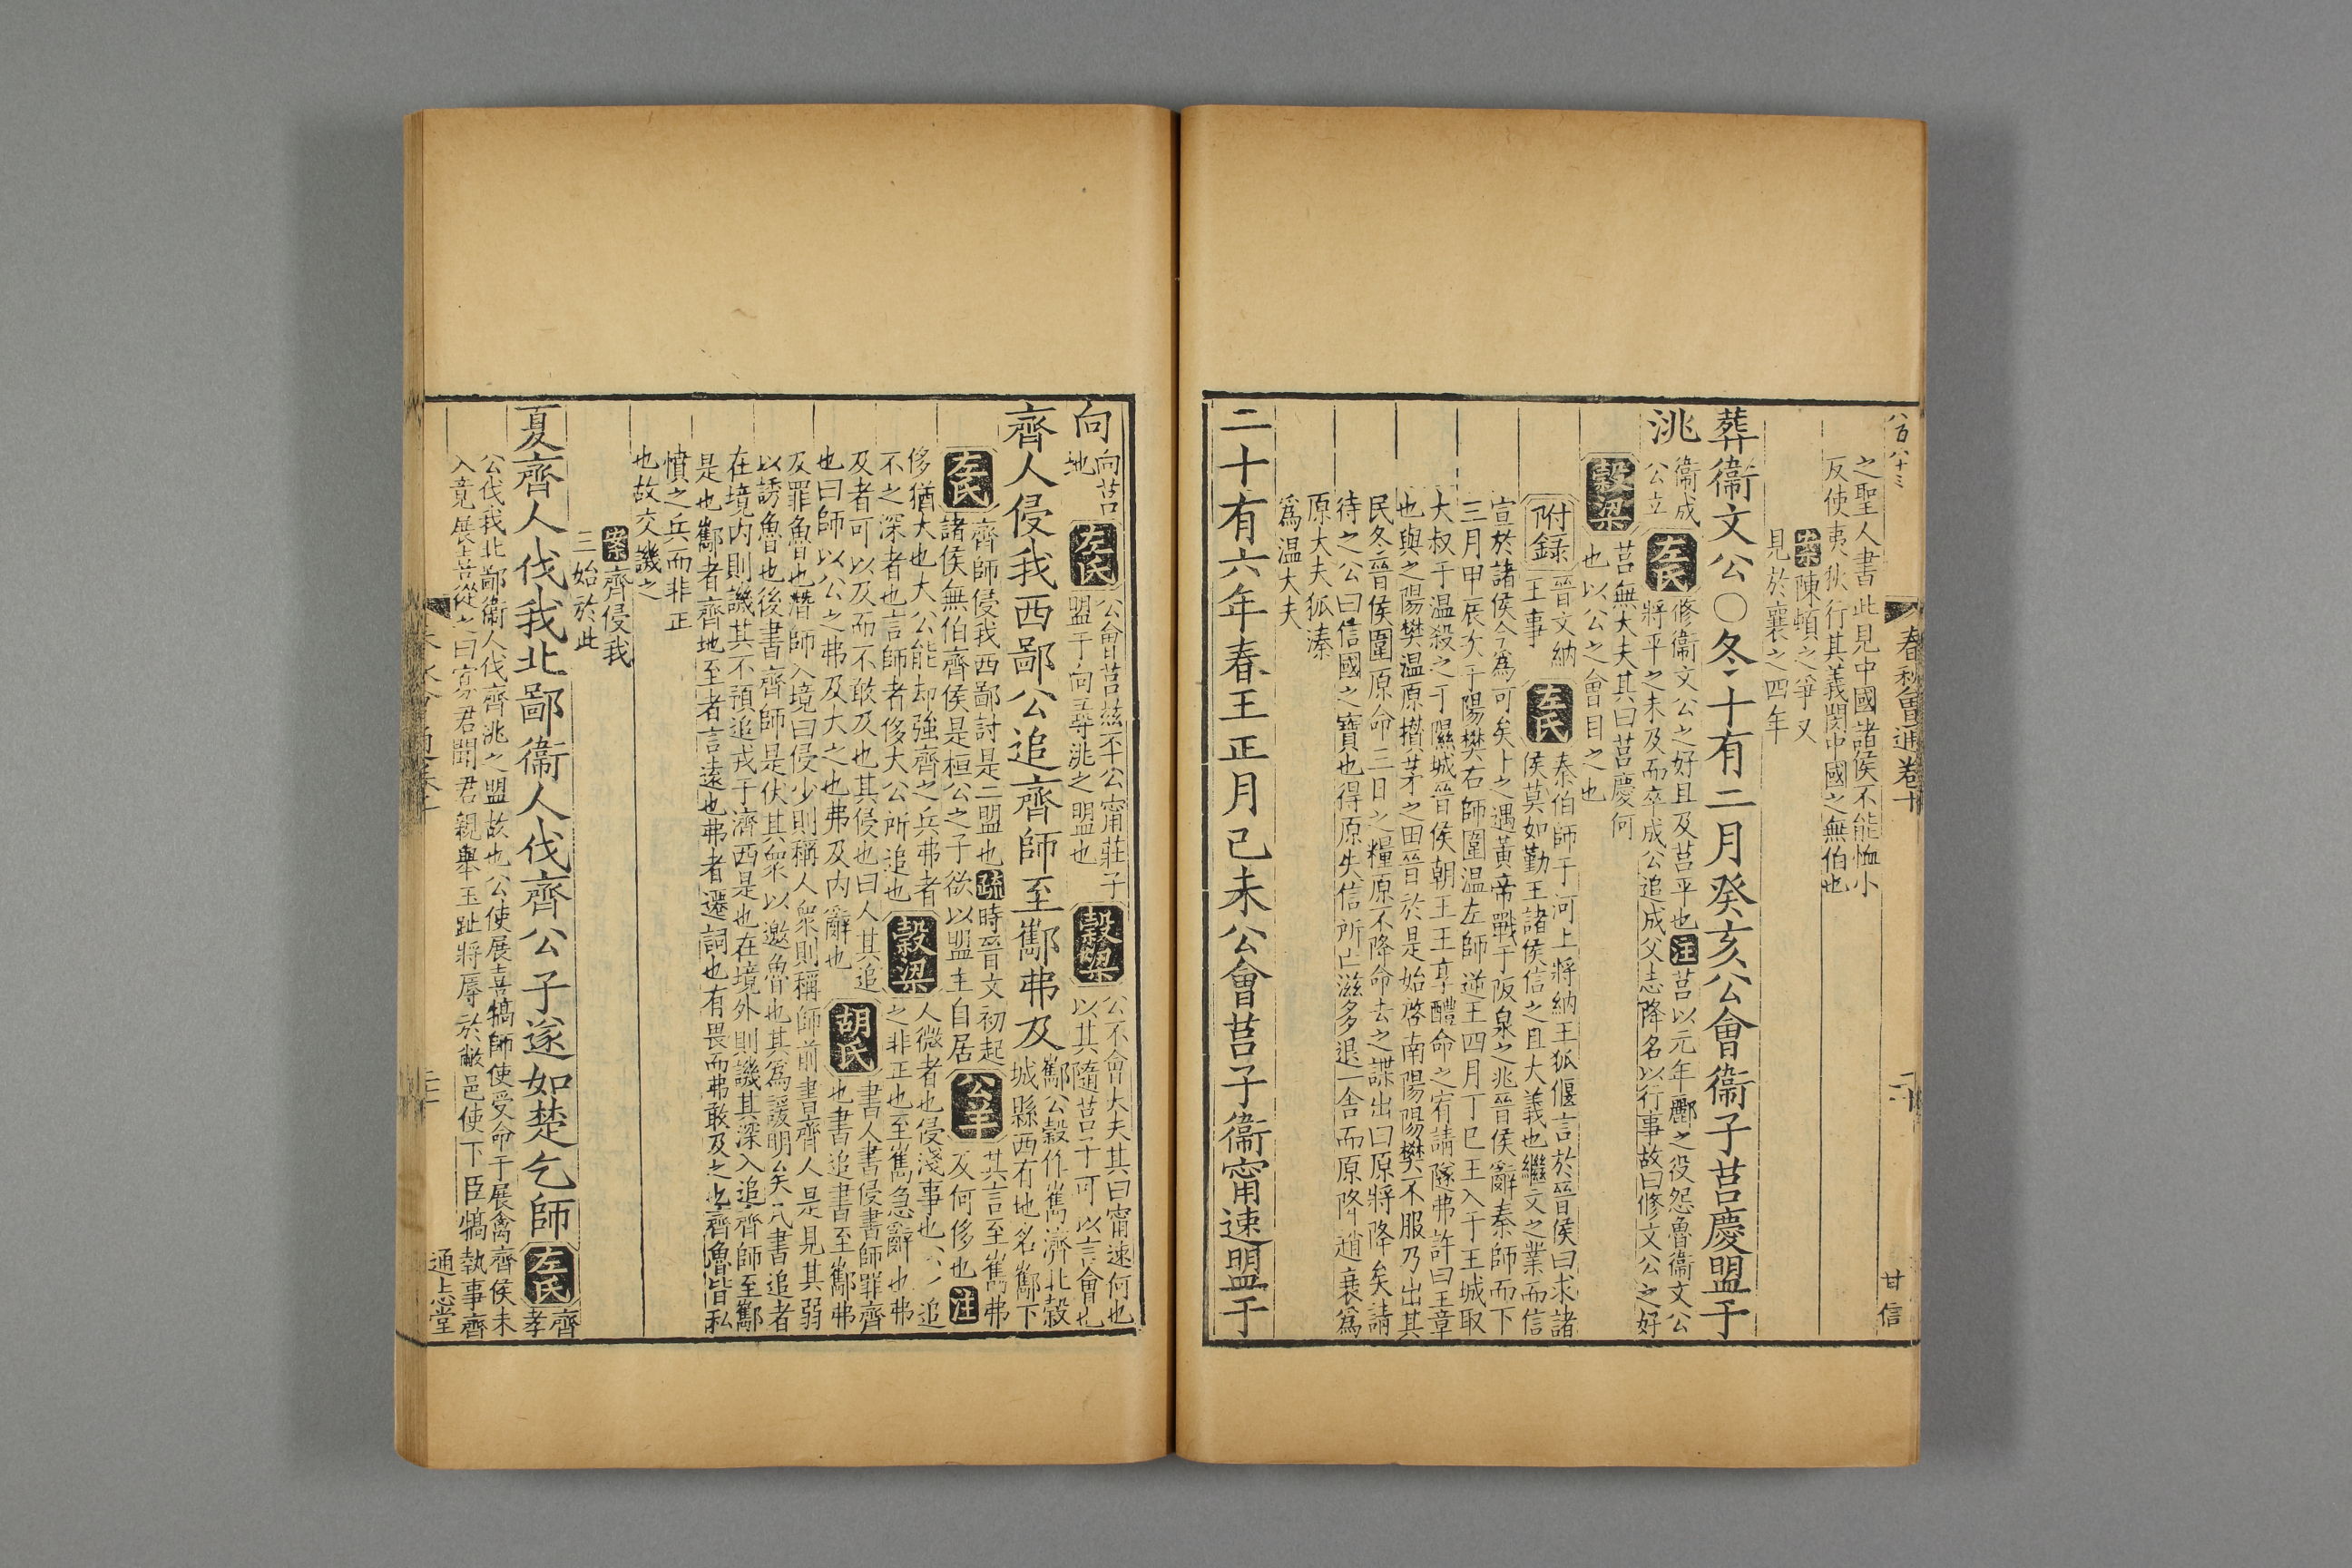 八百八十三
春秋會通卷十
二十
甘信
之聖人書此見中國諸侯不能恤小
反使夷狄行其義閔中國之無伯也
案陳頓之爭又
見於襄之四年
葬衞文公〇冬十有二月癸亥公會衞子莒慶盟于
洮
衞成
公立
左氏
修衞文公之好且及莒平也注莒以元年酈之役怨魯衞文公
將平之未及而卒成公追成父志降名以行事故曰修文公之好
穀梁
莒無大夫其曰莒慶何
也以公之會目之也
附錄
晉文納
王事
左氏
秦伯師于河上將納王狐偃言於晉侯曰求諸
侯莫如勤王諸侯信之且大義也繼文之業而信
宣於諸侯今爲可矣卜之遇黃帝戰于阪泉之兆晉侯辭秦師而下
三月甲辰次于陽樊右師圍溫左師逆王四月丁巳王入于王城取
大叔于溫殺之于隰城晉侯朝王王享醴命之宥請隧弗許曰王章
也與之陽樊溫原攢茅之田晉於是始啓南陽陽樊不服乃出其
民冬晉侯圍原命三日之糧原不降命去之諜出曰原將降矣請
待之公曰信國之寶也得原失信所亡滋多退一舍而原降趙衰爲
原大夫狐溱
爲溫大夫
二十有六年春王正月己未公會莒子衞甯速盟于
向
向莒
地
左氏
公會莒茲丕公甯莊子
盟于向尋洮之盟也
穀梁
公不會大夫其曰甯速何也
以其隨莒子可以言會也
齊人侵我西鄙公追齊師至酅弗及
酅公穀作巂濟北穀
城縣西有地名酅下
左氏
齊師侵我西鄙討是二盟也疏時晉文初起
諸侯無伯齊侯是桓公之子欲以盟主自居
公羊
其言至巂弗
及何侈也注
侈猶大也大公能却強齊之兵弗者
不之深者也言師者侈大公所追也
穀梁
人微者也侵淺事也公之追
之非正也至巂急辭也弗
及者可以及而不敢及也其侵也曰人其追
也曰師以公之弗及大之也弗及內辭也
胡氏
書人書侵書師罪齊
也書追書至酅弗
及罪魯也潛師入境曰侵少則稱人衆則稱師前書齊人是見其弱
以誘魯也後書齊師是伏其衆以邀魯也其爲諼明矣凡書追者
在境內則譏其不預追戎于濟西是也在境外則譏其深入追齊師至酅
是也酅者齊地至者言遠也弗者遷詞也有畏而弗敢及之也齊魯皆私
憤之兵而非正
也故交譏之
案齊侵我
三始於此
夏齊人伐我北鄙衞人伐齊公子遂如楚乞師
左氏
齊
孝
公伐我北鄙衞人伐齊洮之盟故也公使展喜犒師使受命于展禽齊侯未
入竟展喜從之曰寡君聞君親舉玉趾將辱於敝邑使下臣犒執事齊
通志堂